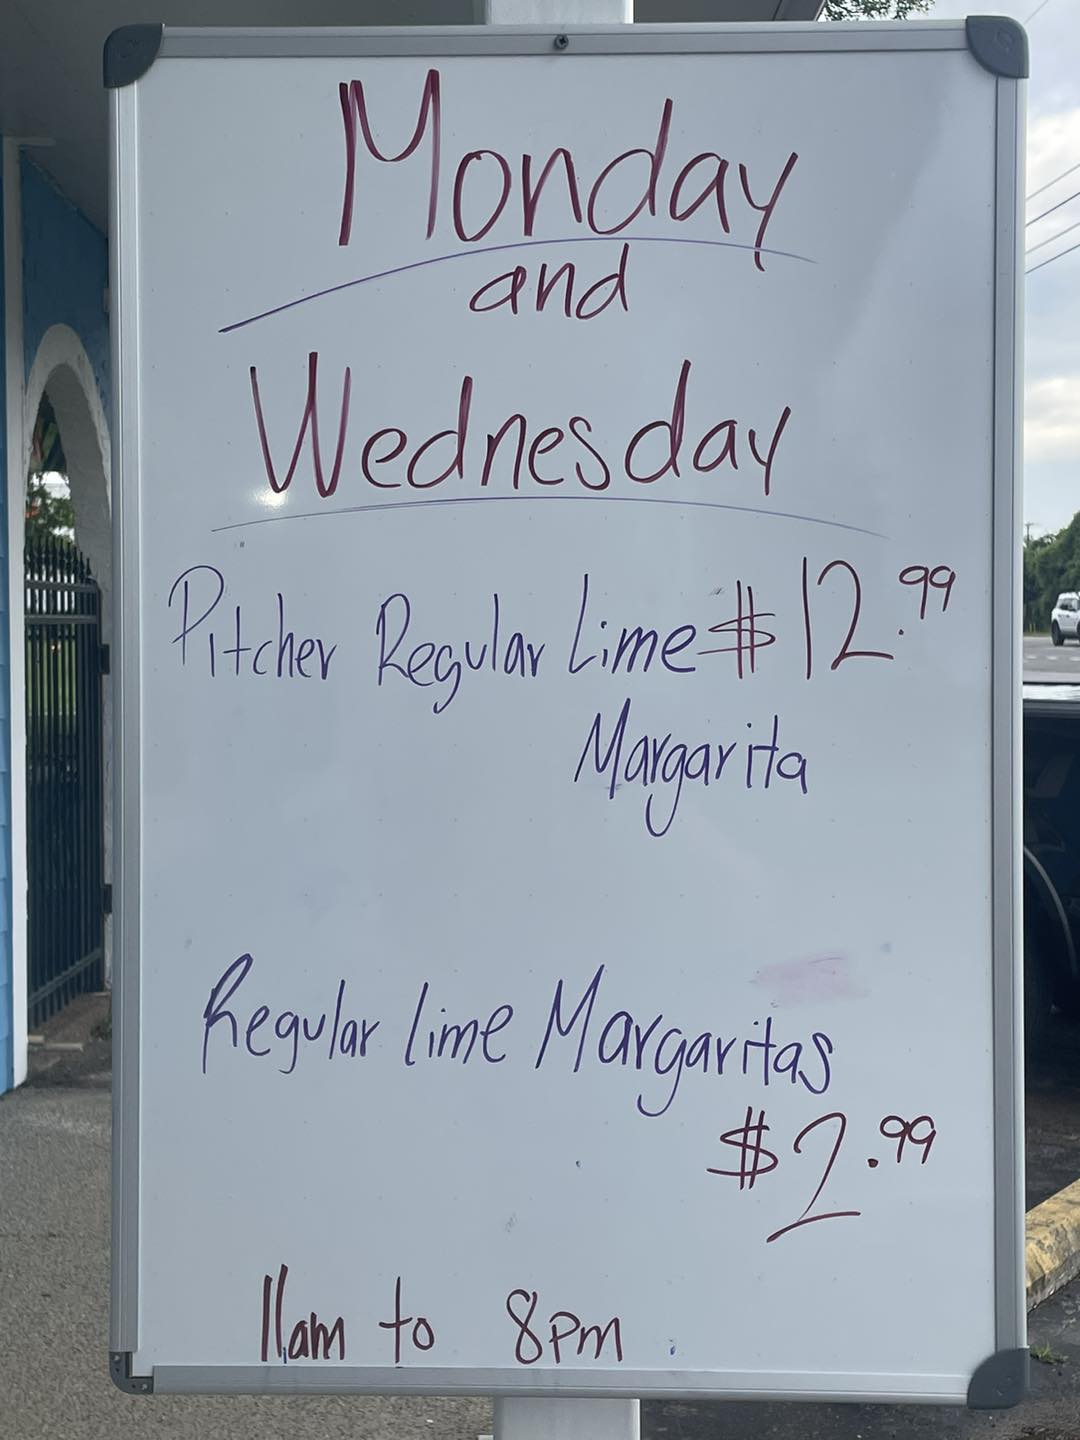 Monday
and
Wednesday
Pitcher Regular Lime $12.99
Margarita
Regular lime Margaritas
$2.99
11am to 8pm